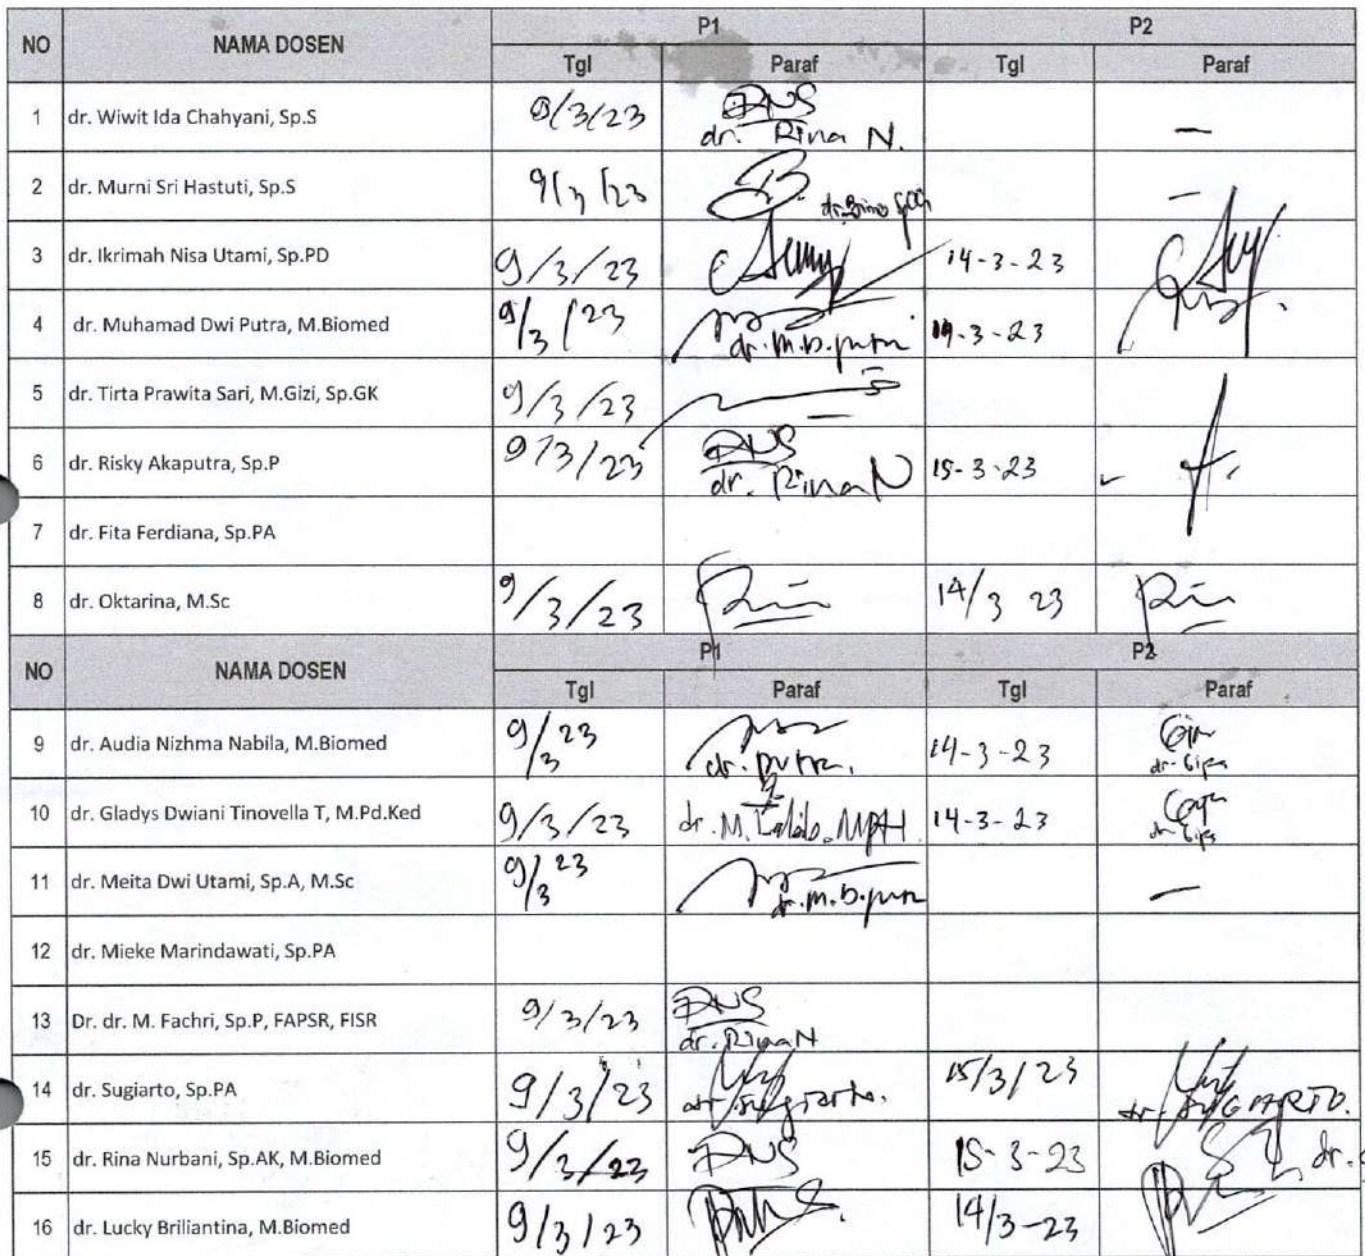 NO NAMA DOSEN P1 P2
Tgl Paraf Tgl Paraf
1 dr. Wiwit Ida Chahyani, Sp.S 8/3/23 dr. Rina N. —
2 dr. Murni Sri Hastuti, Sp.S 9/3/23 —
3 dr. Ikrimah Nisa Utami, Sp.PD 9/3/23 14-3-23
4 dr. Muhamad Dwi Putra, M.Biomed 9/3/23 dr. M.D. putra 14-3-23
5 dr. Tirta Prawita Sari, M.Gizi, Sp.GK 9/3/23
6 dr. Risky Akaputra, Sp.P 9/3/23 dr. Rina N 15-3-23
7 dr. Fita Ferdiana, Sp.PA
8 dr. Oktarina, M.Sc 9/3/23 14/3 23
NO NAMA DOSEN P1 P2
Tgl Paraf Tgl Paraf
9 dr. Audia Nizhma Nabila, M.Biomed 9/3 23 dr. putra. 14-3-23
10 dr. Gladys Dwiani Tinovella T, M.Pd.Ked 9/3/23 dr. M. MPH 14-3-23
11 dr. Meita Dwi Utami, Sp.A, M.Sc 9/3 23 —
12 dr. Mieke Marindawati, Sp.PA
13 Dr. dr. M. Fachri, Sp.P, FAPSR, FISR 9/3/23 dr. Rina N
14 dr. Sugiarto, Sp.PA 9/3/23 dr. Sugiarto. 15/3/23 dr. SUGIARTO.
15 dr. Rina Nurbani, Sp.AK, M.Biomed 9/3/23 15-3-23 dr.
16 dr. Lucky Briliantina, M.Biomed 9/3/23 14/3-23